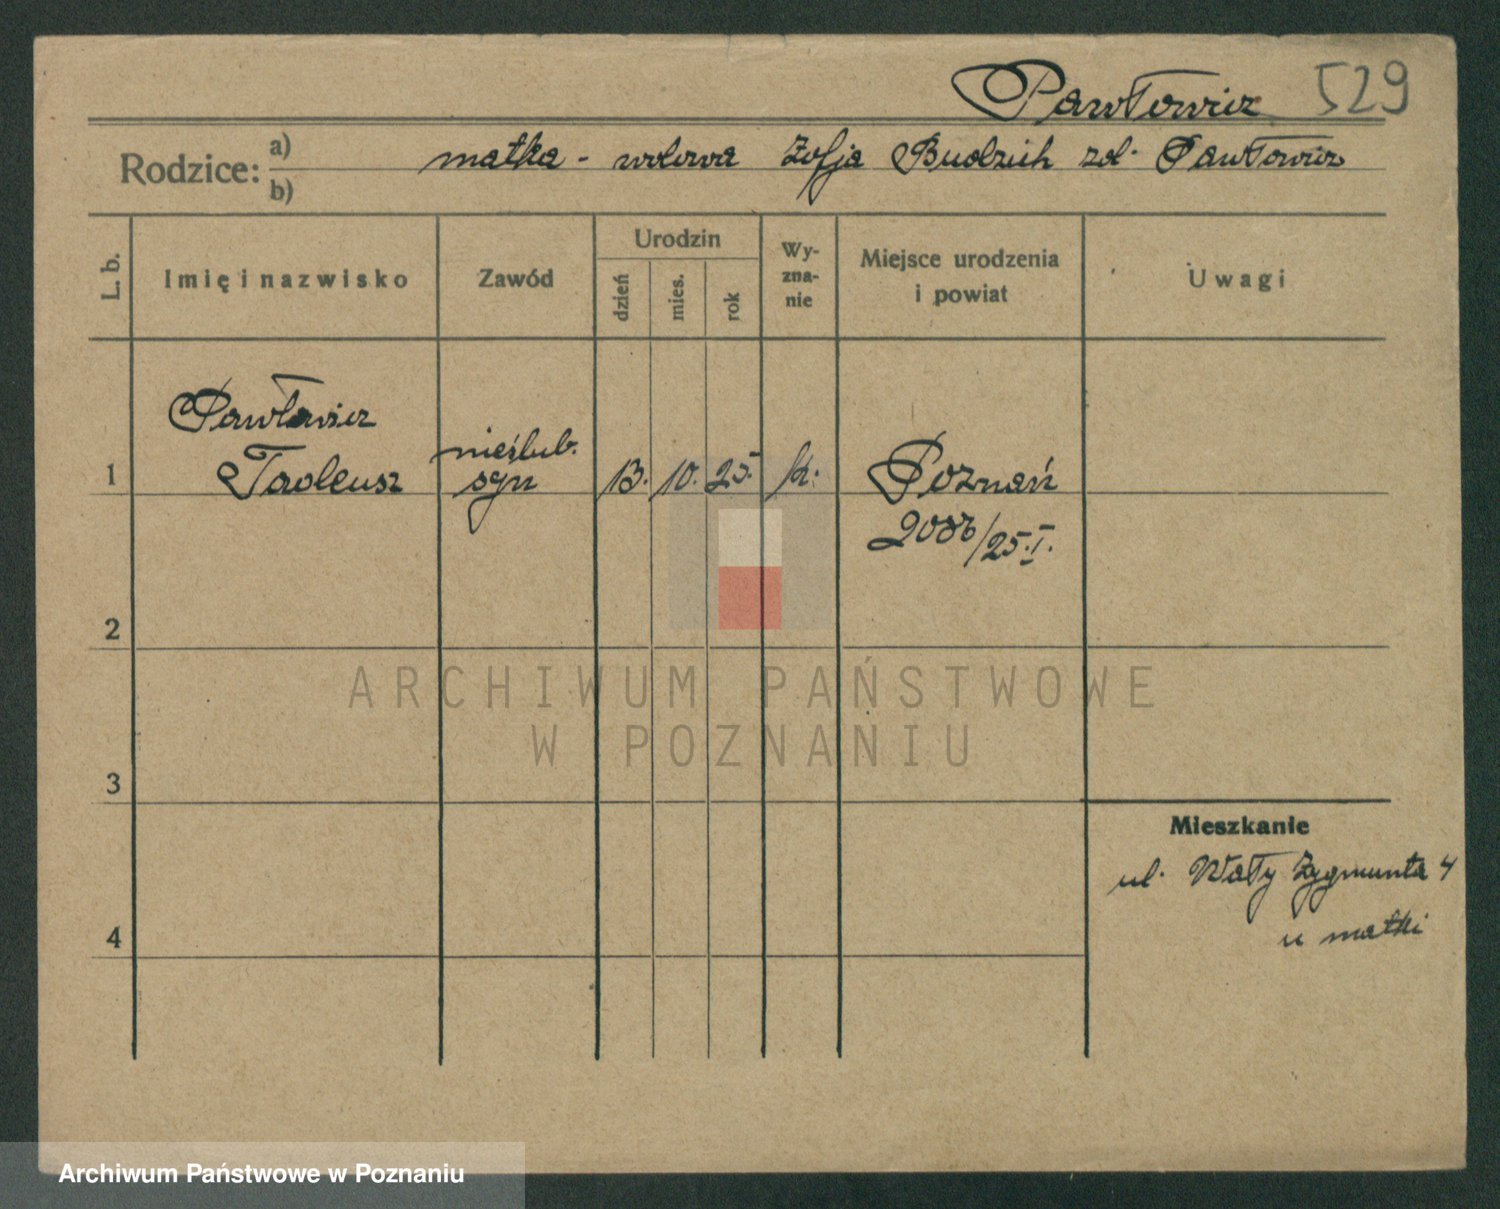 Pawłowicz 529
Rodzice: a) matka - wdowa Zofja Budzich zd. Pawłowicz
b)
L. b.
Imię i nazwisko
Zawód
Urodzin
dzień
mies.
rok
Wy-
zna-
nie
Miejsce urodzenia
i powiat
Uwagi
Pawłowicz
1 Tadeusz
nieślub.
syn
13. 10. 25. k.
Poznań
/25.I.
2
3
4
Mieszkanie
ul. Wały Zygmunta 4
u matki
ARCHIWUM PAŃSTWOWE
W POZNANIU
Archiwum Państwowe w Poznaniu